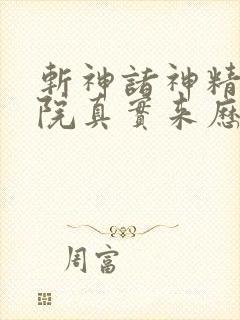 斬神諸神精
院真實来歷
周富